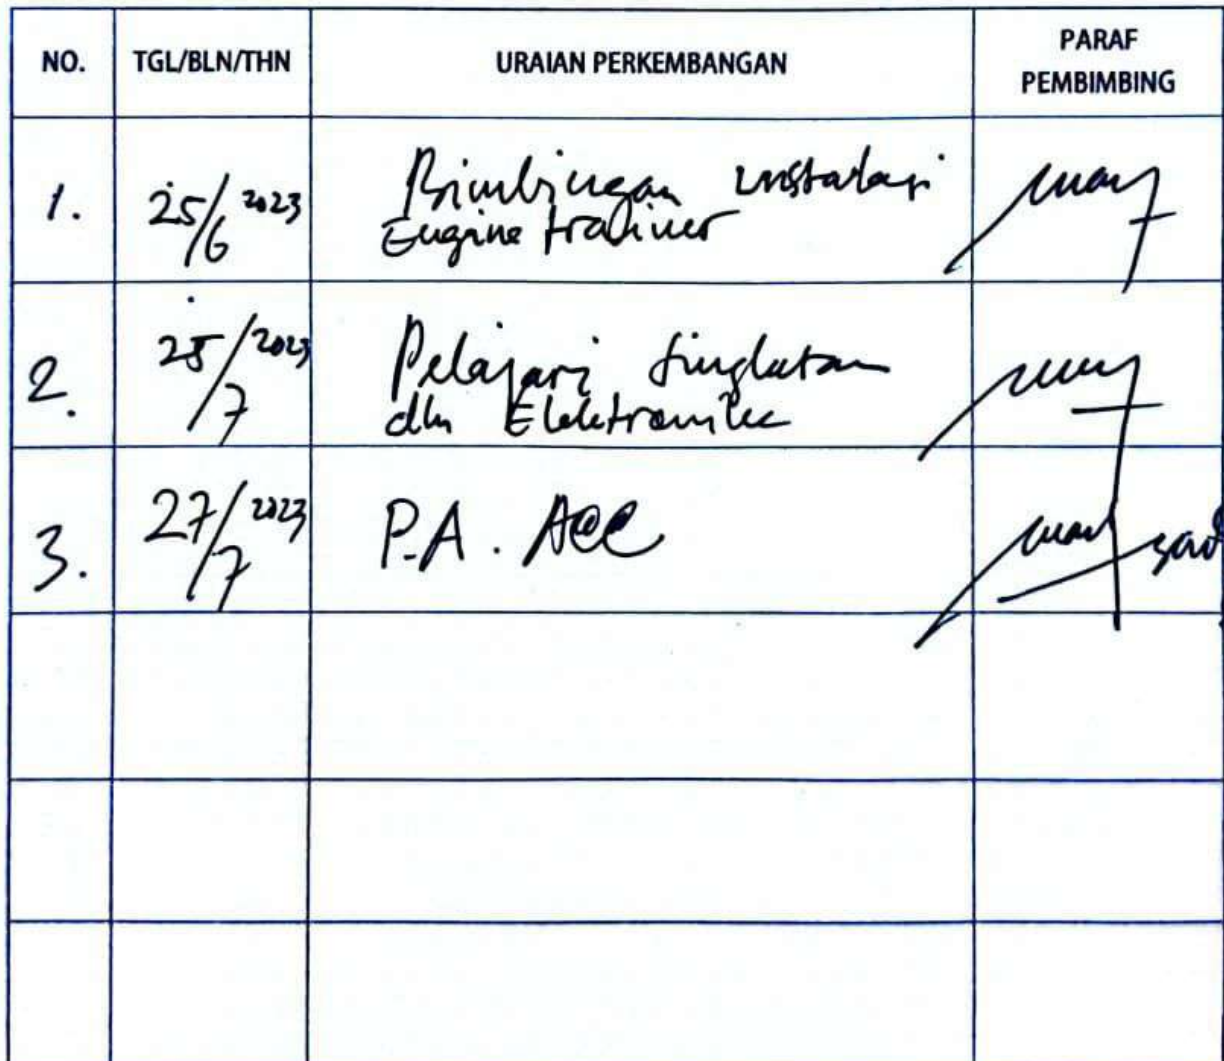 NO. TGL/BLN/THN URAIAN PERKEMBANGAN PARAF PEMBIMBING
1. 25/6 2023 Bimbingan instalasi
Engine trainer
2. 25/7 2023 Pelajari singkatan
dlm Elektronik
3. 27/7 2023 P.A. Acc